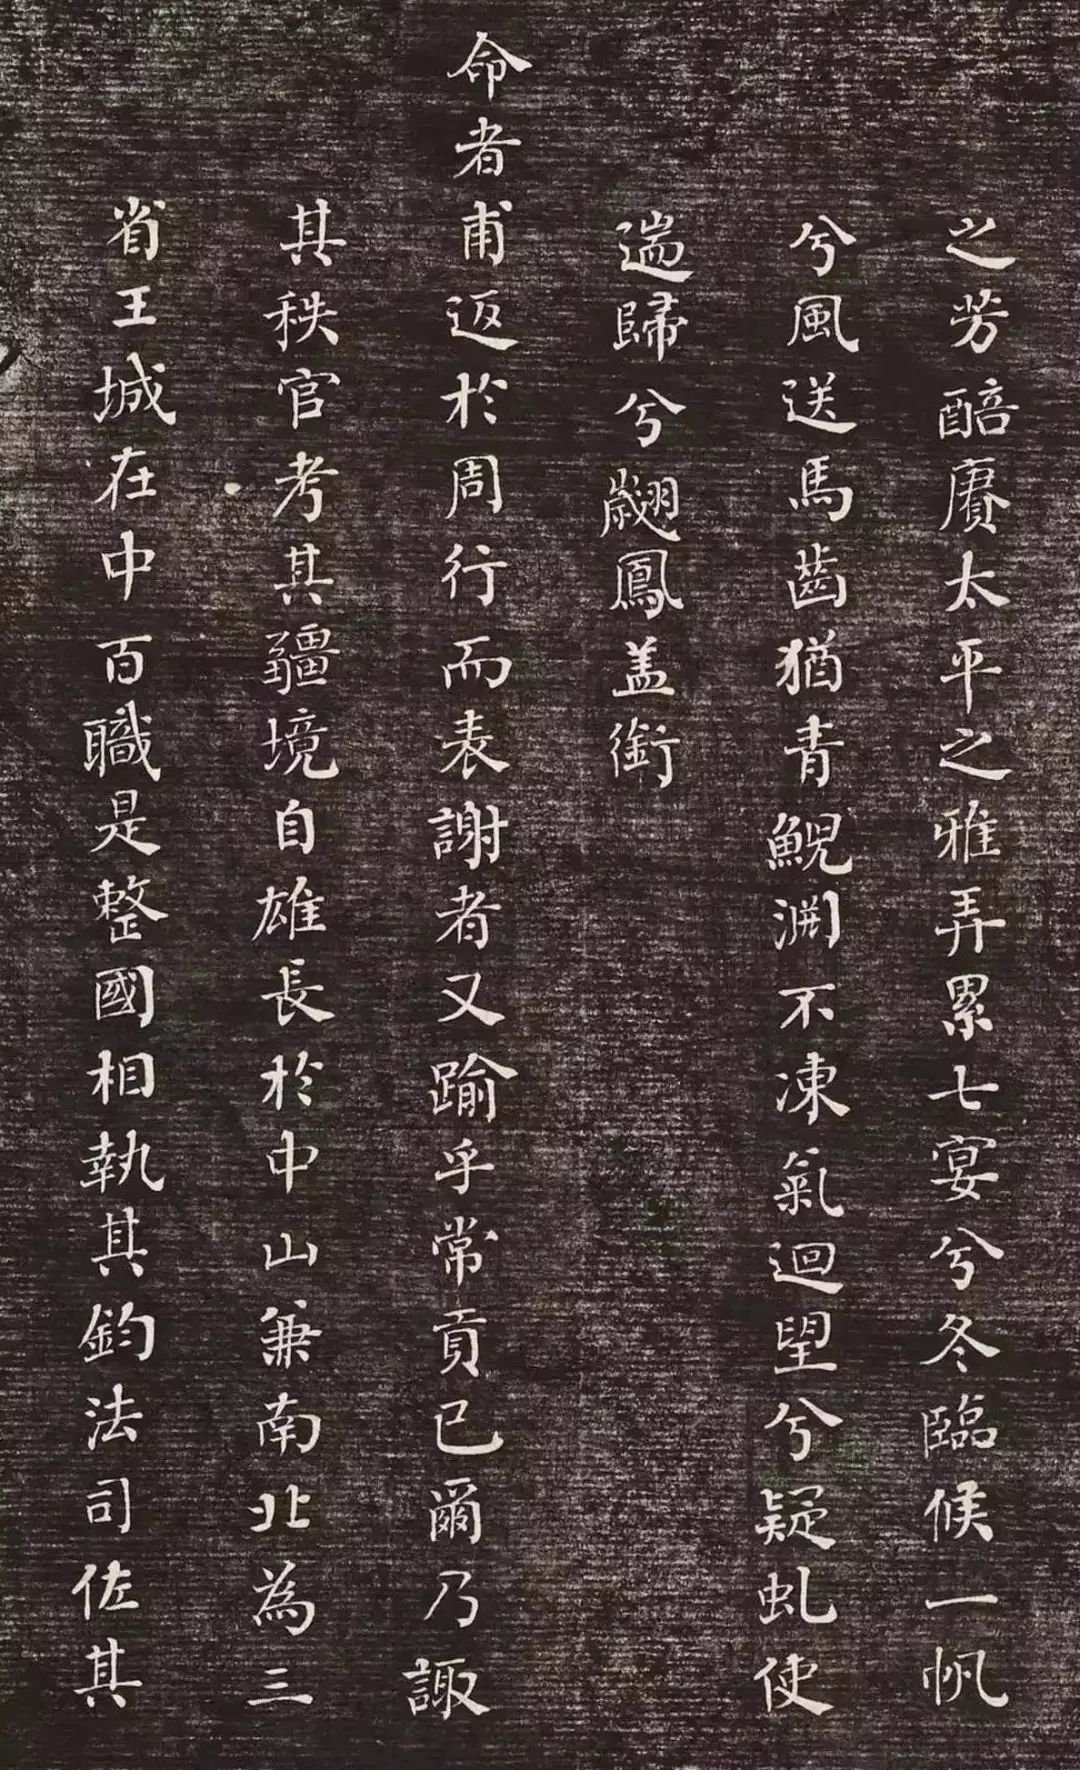 之芳醅賡太平之雅弄累七宴兮冬臨候一帆
兮風送馬齒猶青鯢渊不凍氣迴望兮疑虬使
遄歸兮翽鳳盖銜
命者甫返於周行而表謝者又踰乎常貢已爾乃諏
其秩官考其疆境自雄長於中山兼南北為三
省王城在中百職是整國相執其鈞法司佐其